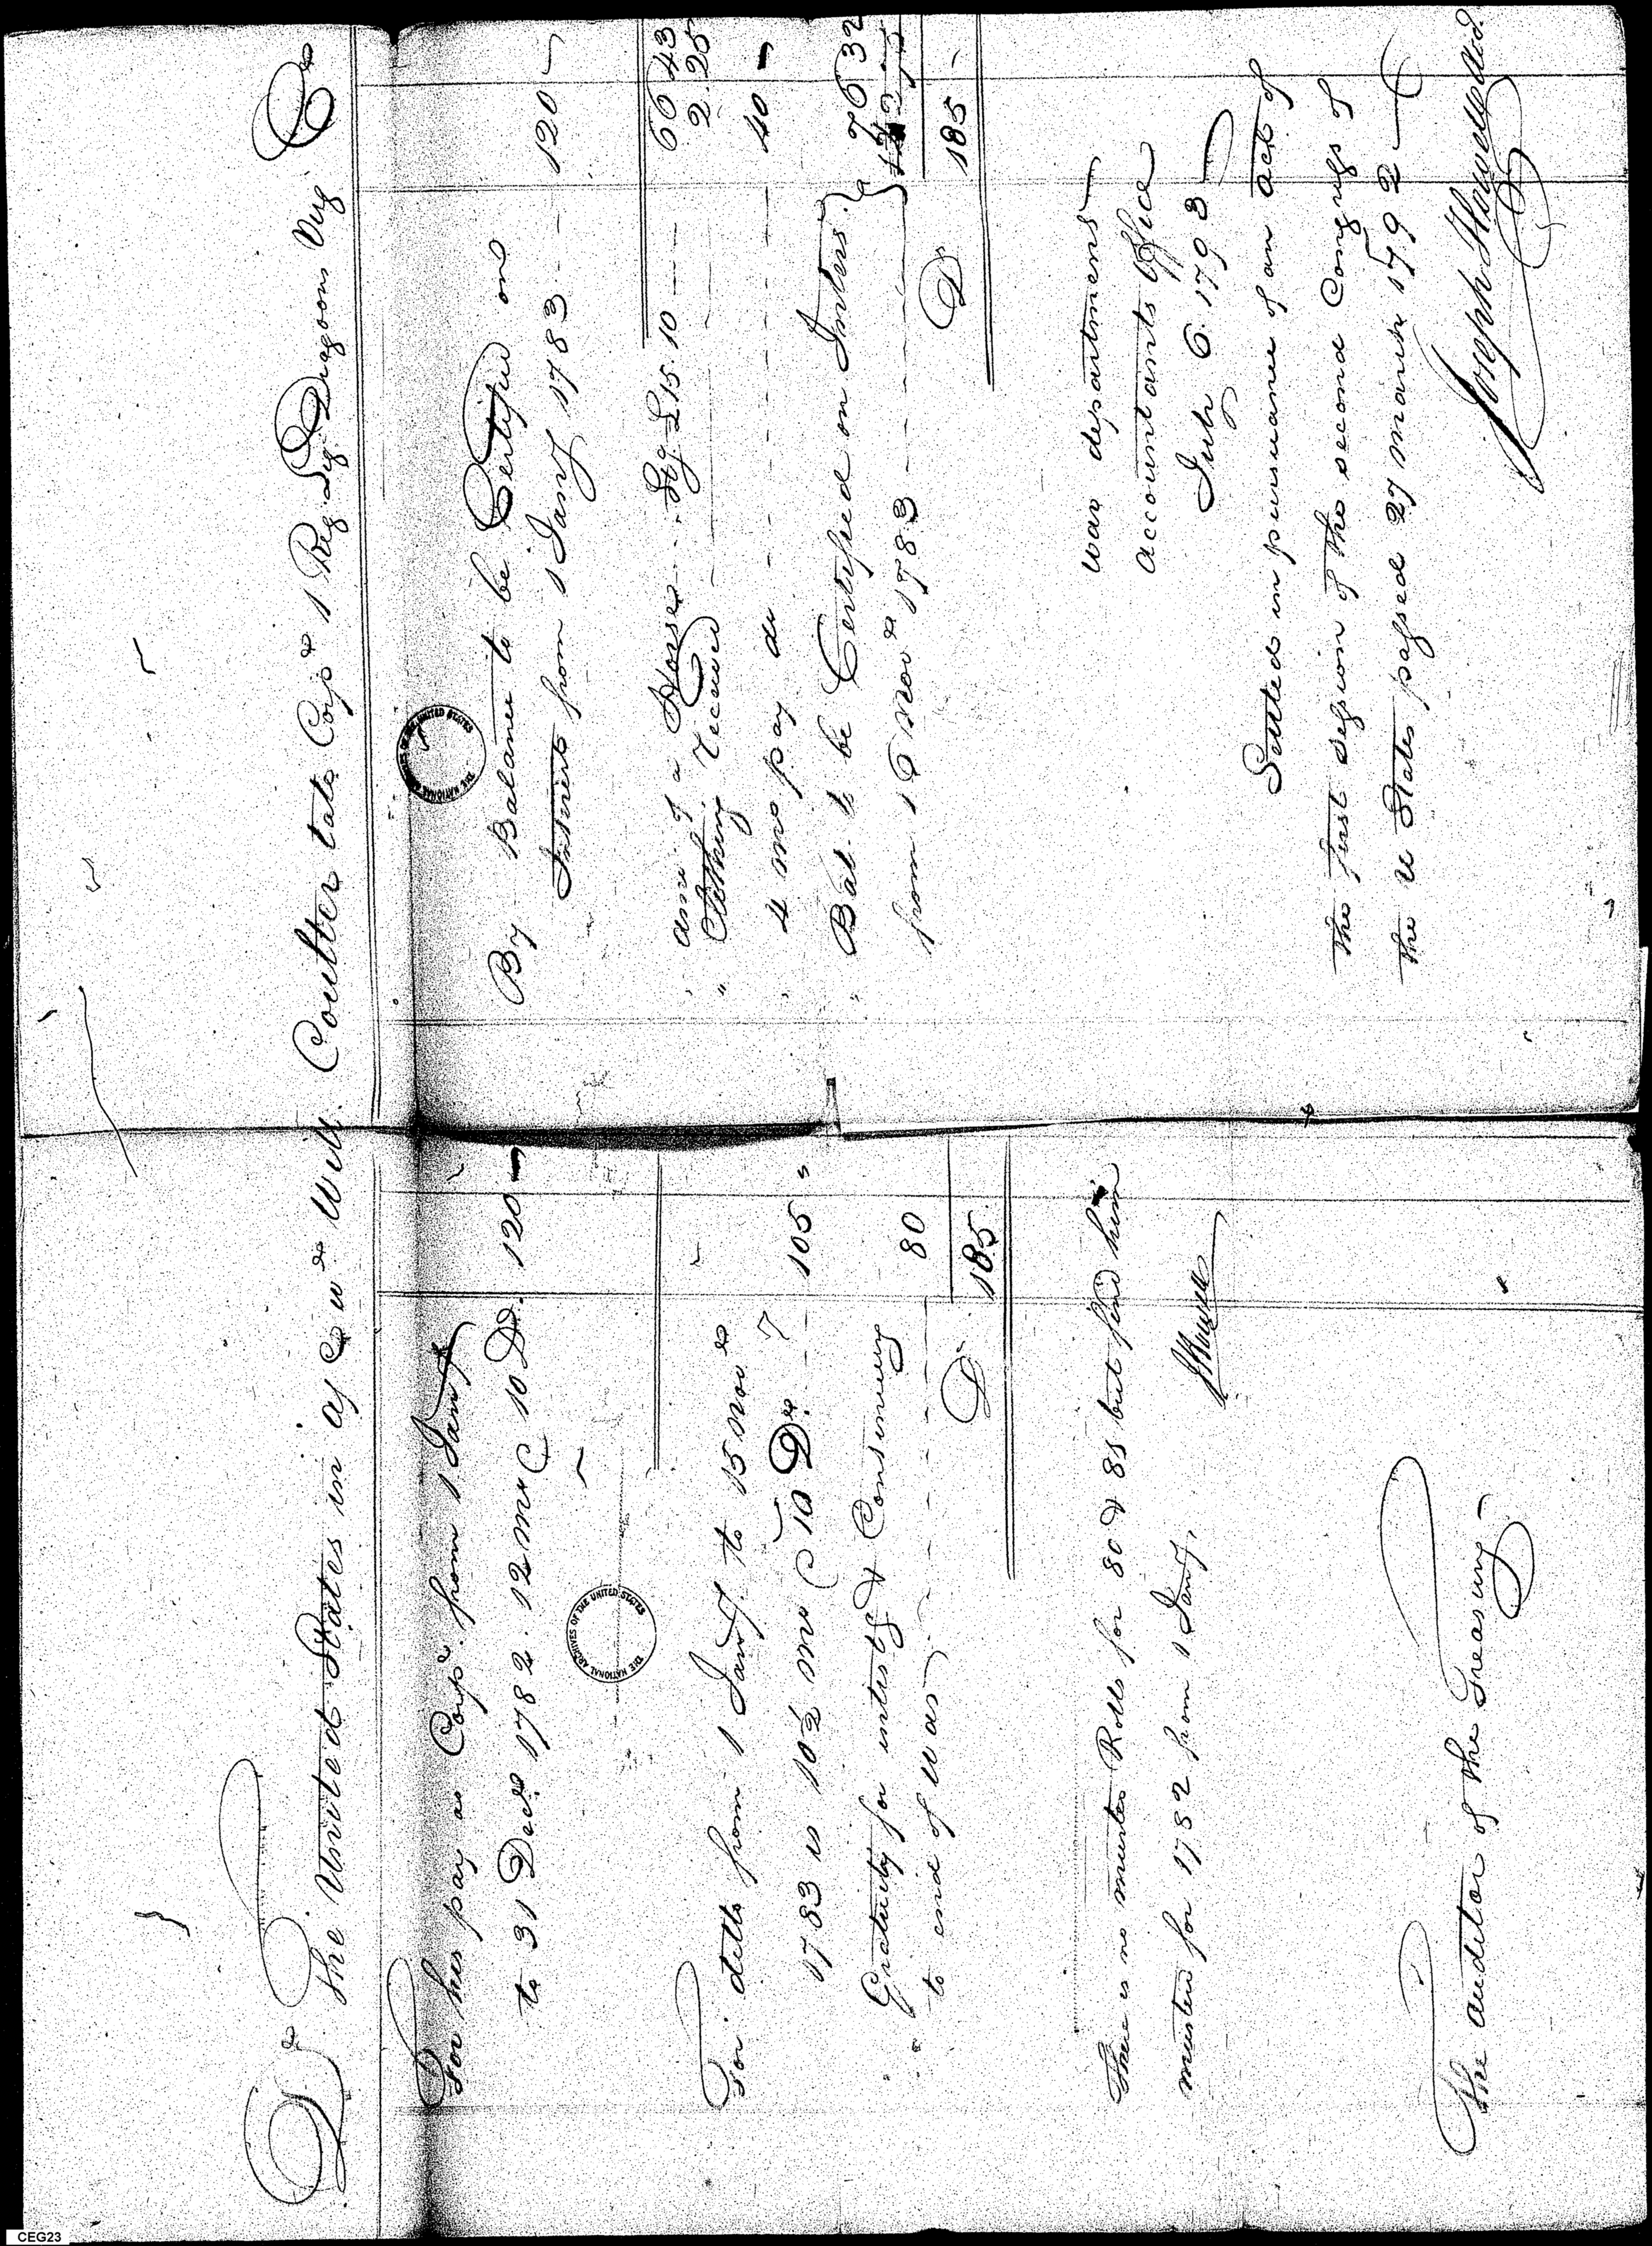 Dr The United States in a/c wh Will. Coulter late Corpl 1 Reg Lig Dragoon Virg Cr
For his pay as Corpl from 1 Jany
to 31 Decr 1782. 12 mos @ 10 Ds. 120
For ditto from 1 Jany. to 15 Novr
1783 is 10½ mos @ 10 Ds. 105 "
" Gratuity for intrest & Continuing
to end of War 80
D 185.
There is no muster Rolls for 80 & 81 but find him
mustered for 1782 from 1 Jany.
The auditor of the Treasury
By Balance to be Certified on
Interest from 1 Jany 1783 120
" amt of a Horse Lig £15.10 66 43
" Clothing received 2 25
" 4 mos pay do 40
" Bal. to be Certified on Inters.
from 16 Novr 1783 76 32
D 185
War department
Accountants Office
July 6. 1793
Settled in pursuance of an act of
the first session of the second Congress of
the U States passed 27 March 1792
Joseph Howell Actt.
THE NATIONAL ARCHIVES OF THE UNITED STATES
THE NATIONAL ARCHIVES OF THE UNITED STATES
CEG23